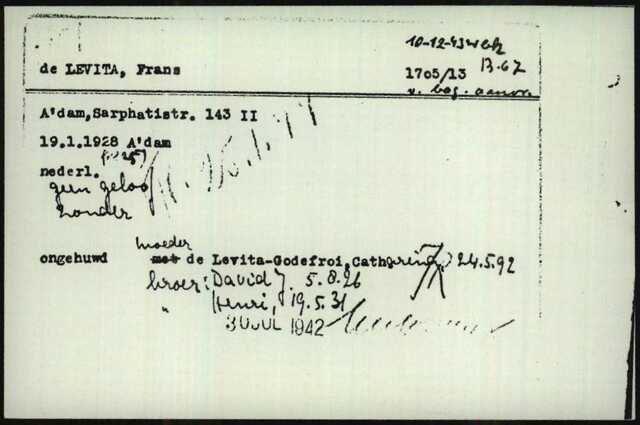 10-12-43 Wbk
de LEVITA, Frans 1705/13 B.67
v. bag. aanw.
A'dam, Sarphatistr. 143 II
19.1.1928 A'dam
nederl.
geen geloof
zonder
moeder
ongehuwd met de Levita-Godefroi, Catharina, 24.5.92
broer: David J. 5.8.26
" Henri, 19.5.31
30 JUL 1942